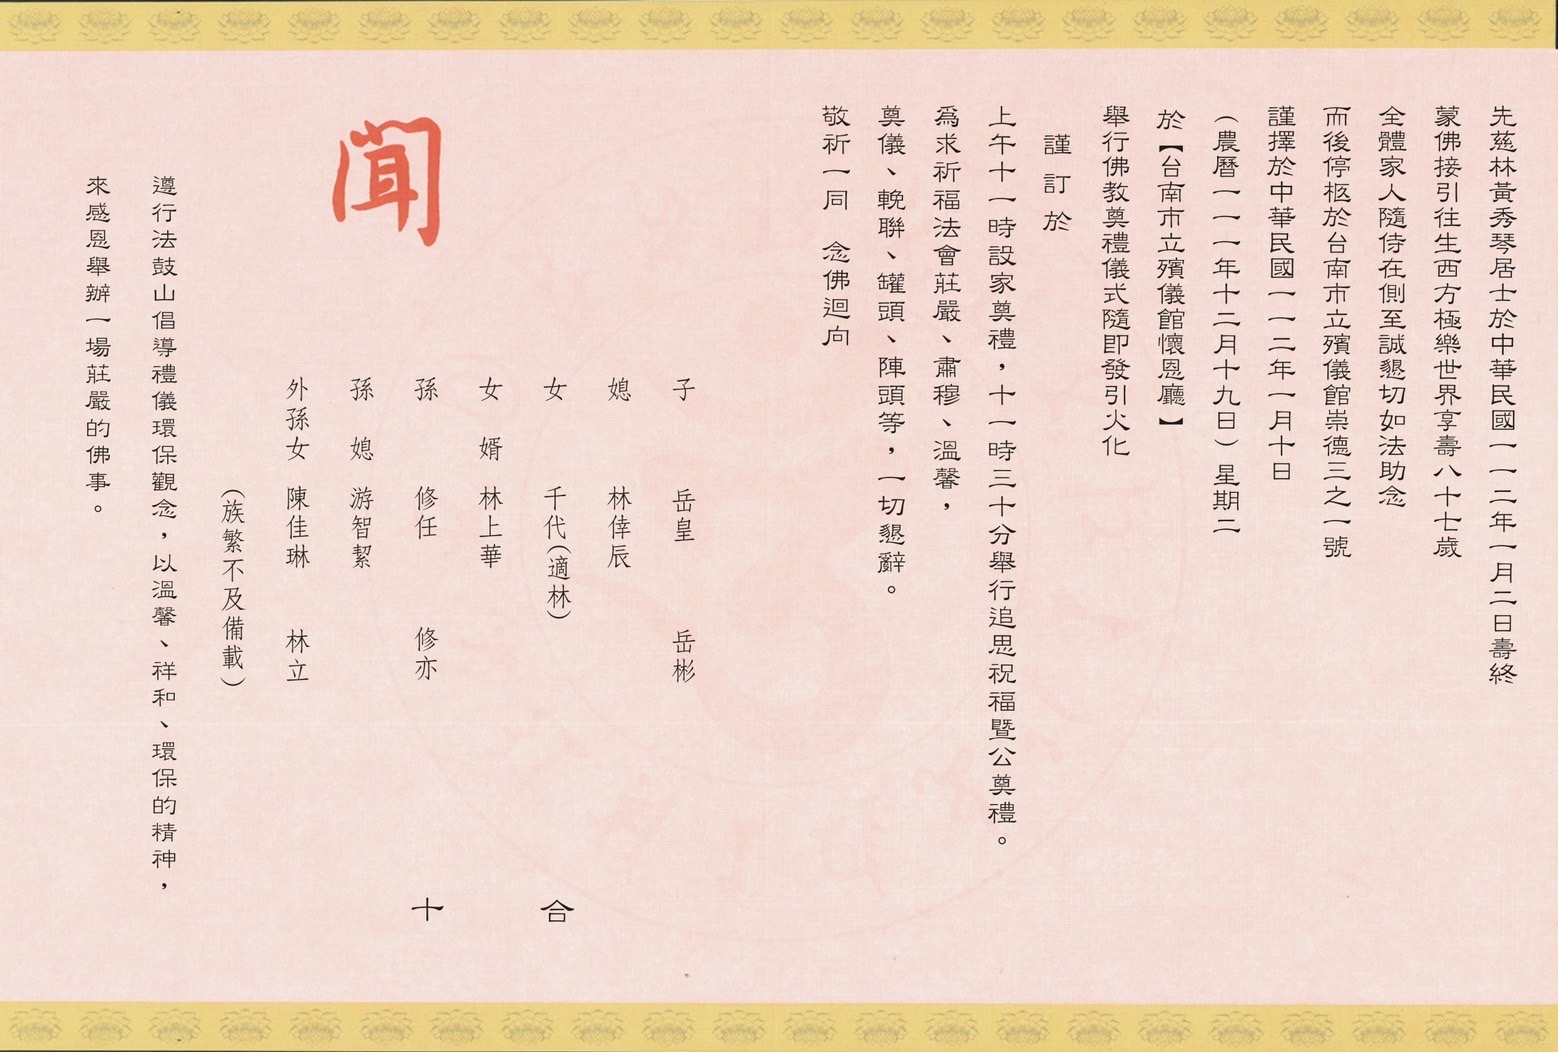 先慈林黃秀琴居士於中華民國一一二年一月二日壽終
蒙佛接引往生西方極樂世界享壽八十七歲
全體家人隨侍在側至誠懇切如法助念
而後停柩於台南市立殯儀館崇德三之一號
謹擇於中華民國一一二年一月十日
（農曆一一一年十二月十九日）星期二
於【台南市立殯儀館懷恩廳】
舉行佛教奠禮儀式隨即發引火化
謹訂於
上午十一時設家奠禮，十一時三十分舉行追思祝福暨公奠禮。
為求祈福法會莊嚴、肅穆、溫馨，
奠儀、輓聯、罐頭、陣頭等，一切懇辭。
敬祈一同　念佛迴向
子　岳皇　岳彬
媳　林倖辰
女　千代（適林）
女婿　林上華
孫　修任　修亦
孫媳　游智絜
外孫女　陳佳琳　林立
（族繁不及備載）
合十
聞
遵行法鼓山倡導禮儀環保觀念，以溫馨、祥和、環保的精神，
來感恩舉辦一場莊嚴的佛事。